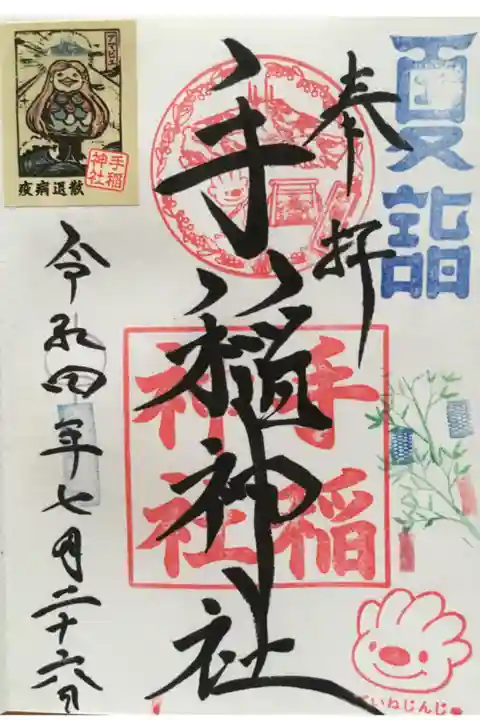 夏詣
奉拝
手稲神社
手稲
神社
ていねじんじゃ
令和四年七月二十六日
アマビエ
疫病退散
手稲
神社